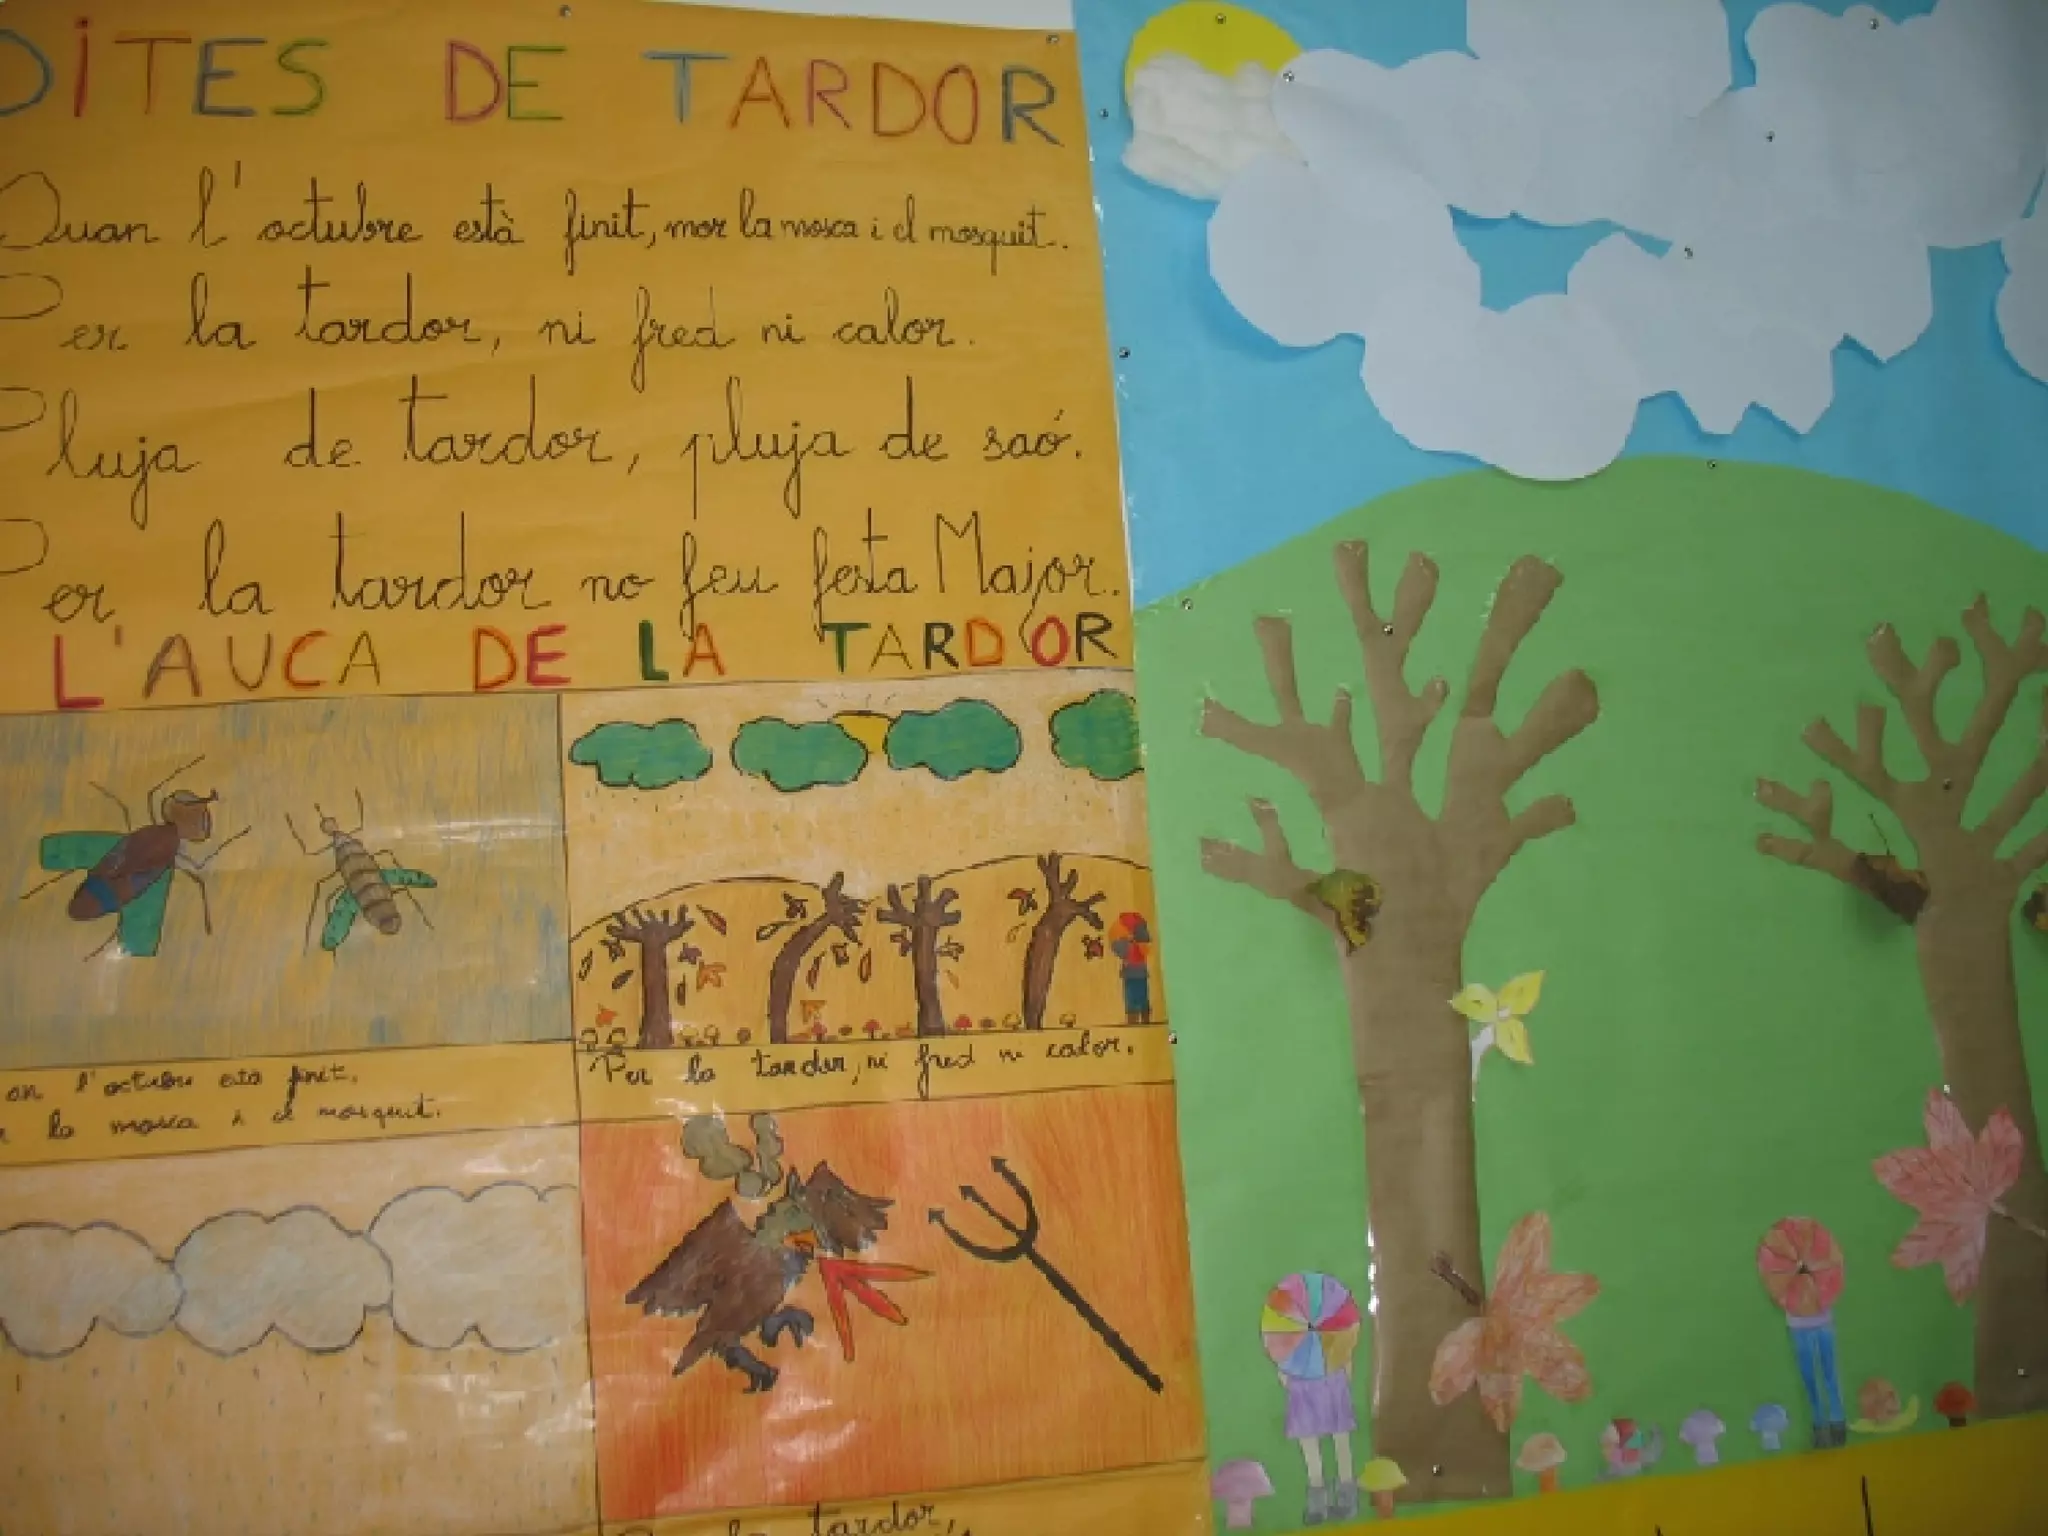 DITES DE TARDOR
Quan l'octubre està finit, mor la mosca i el mosquit.
Per la tardor, ni fred ni calor.
Pluja de tardor, pluja de saó.
Per la tardor no feu festa Major.
L'AUCA DE LA TARDOR
an l'octubre està finit,
r la mosca i el mosquit.
Per la tardor, ni fred ni calor.
la tardor,